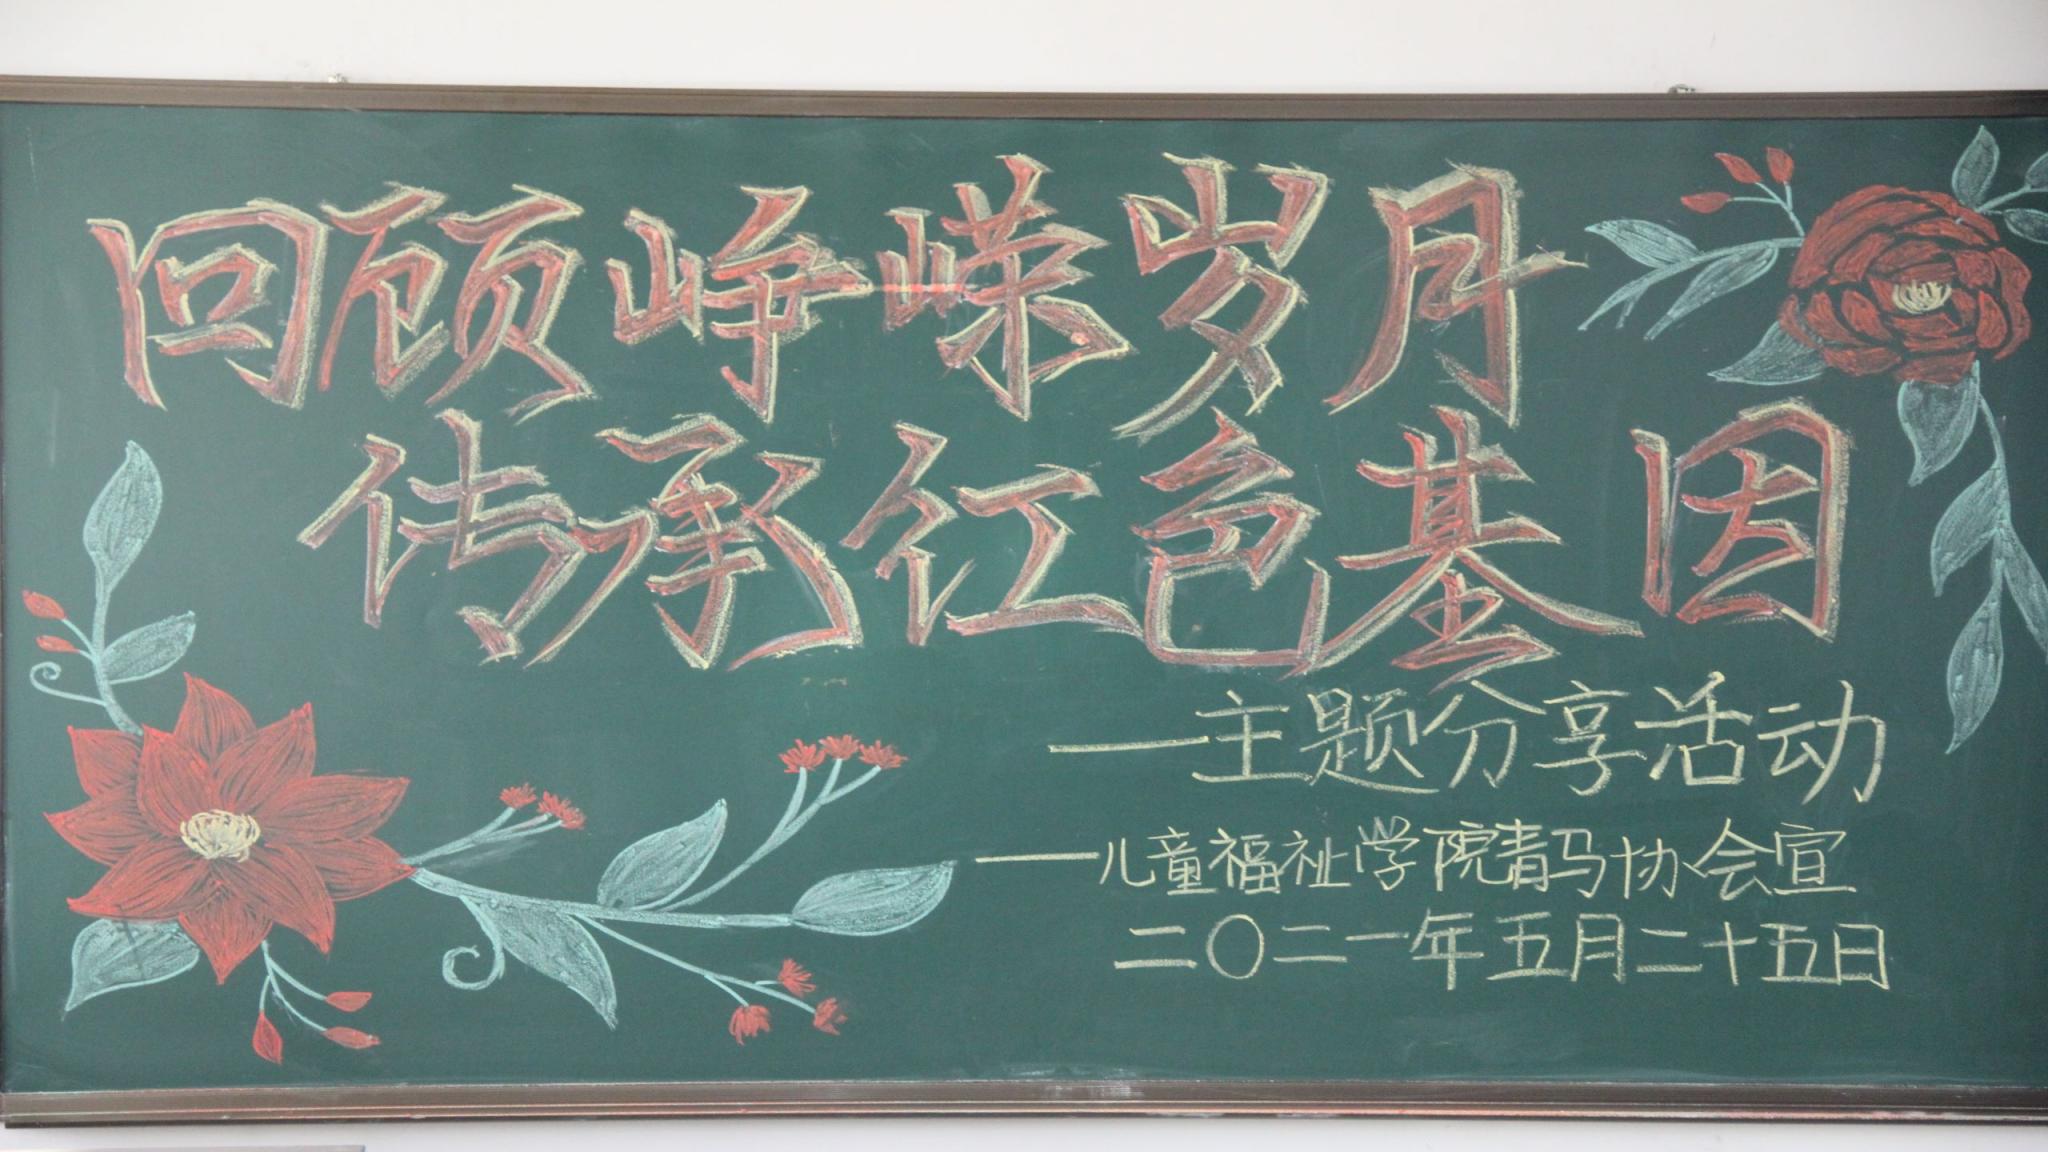 回顾峥嵘岁月
传承红色基因
——主题分享活动
——儿童福祉学院青马协会宣
二〇二一年五月二十五日